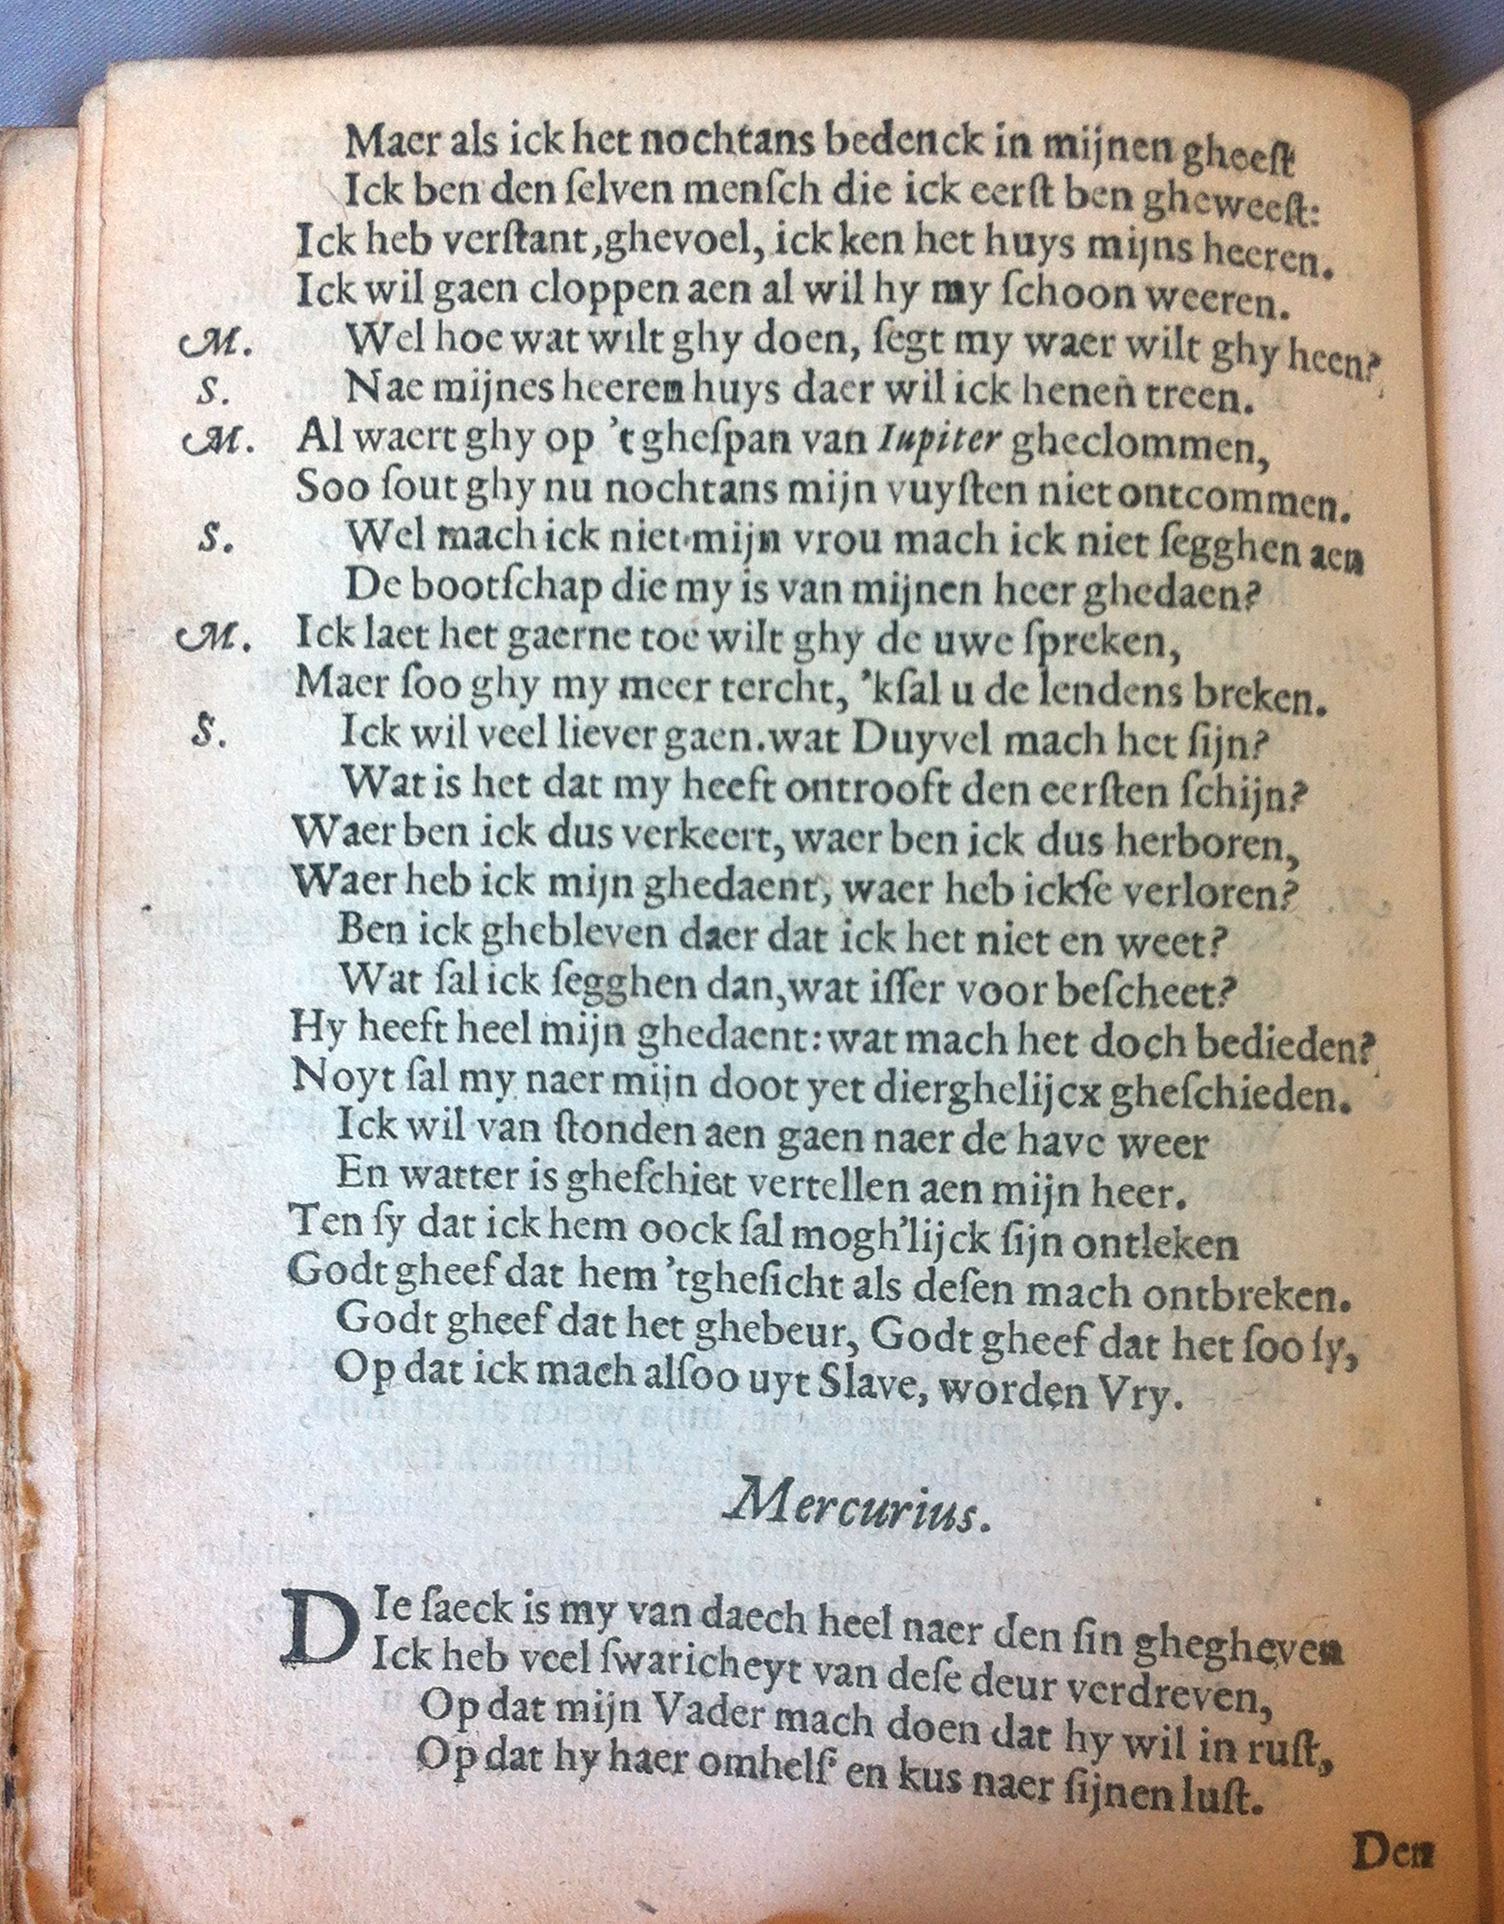 Maer als ick het nochtans bedenck in mijnen gheeſt
Ick ben den ſelven menſch die ick eerſt ben gheweeſt:
Ick heb verſtant, ghevoel, ick ken het huys mijns heeren.
Ick wil gaen cloppen aen al wil hy my ſchoon weeren.
M. Wel hoe wat wilt ghy doen, ſegt my waer wilt ghy heen?
S. Nae mijnes heeren huys daer wil ick henen treen.
M. Al waert ghy op 't gheſpan van Iupiter gheclommen,
Soo ſout ghy nu nochtans mijn vuyſten niet ontcommen.
S. Wel mach ick niet mijn vrou mach ick niet ſegghen aen
De bootſchap die my is van mijnen heer ghedaen?
M. Ick laet het gaerne toe wilt ghy de uwe ſpreken,
Maer ſoo ghy my meer tercht, 'kſal u de lendens breken.
S. Ick wil veel liever gaen. wat Duyvel mach het ſijn?
Wat is het dat my heeft ontrooft den eerſten ſchijn?
Waer ben ick dus verkeert, waer ben ick dus herboren,
Waer heb ick mijn ghedaent, waer heb ickſe verloren?
Ben ick ghebleven daer dat ick het niet en weet?
Wat ſal ick ſegghen dan, wat iſſer voor beſcheet?
Hy heeft heel mijn ghedaent: wat mach het doch bedieden?
Noyt ſal my naer mijn doot yet dierghelijcx gheſchieden.
Ick wil van ſtonden aen gaen naer de have weer
En watter is gheſchiet vertellen aen mijn heer.
Ten ſy dat ick hem oock ſal mogh'lijck ſijn ontleken
Godt gheef dat hem 'tgheſicht als deſen mach ontbreken.
Godt gheef dat het ghebeur, Godt gheef dat het ſoo ſy,
Op dat ick mach alſoo uyt Slave, worden Vry.
Mercurius.
DIe ſaeck is my van daech heel naer den ſin ghegheven
Ick heb veel ſwaricheyt van deſe deur verdreven,
Op dat mijn Vader mach doen dat hy wil in ruſt,
Op dat hy haer omhelſ' en kus naer ſijnen luſt.
Den